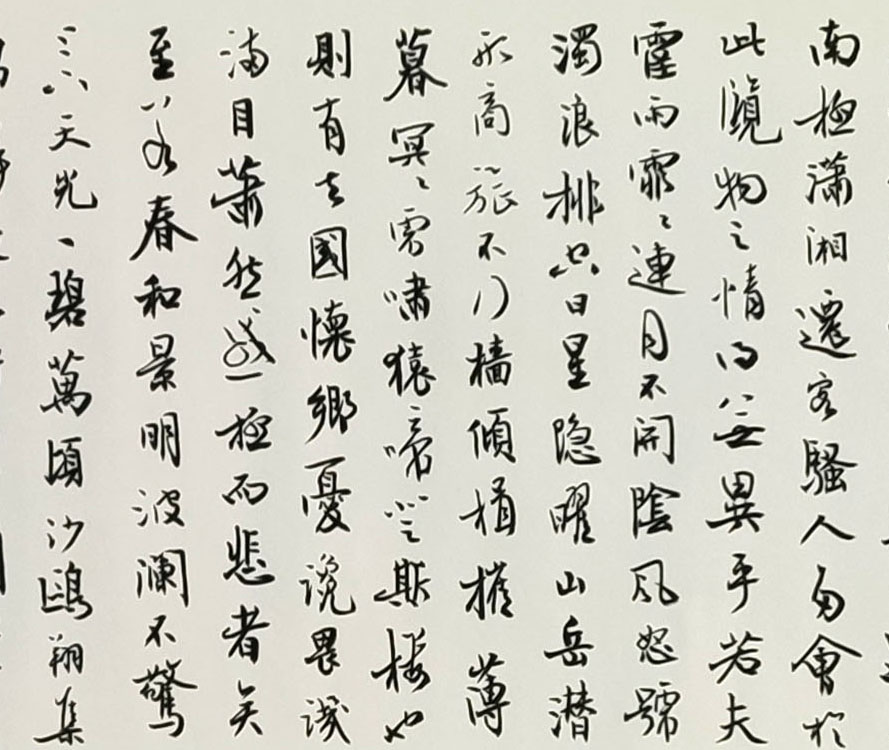 南極瀟湘遷客騷人多會於
此覽物之情得無異乎若夫
霪雨霏々連月不開陰風怒號
濁浪排空日星隐曜山岳潜
形商旅不行檣傾楫摧薄
暮冥々虎嘯猿啼登斯樓也
則有去國懷鄉憂讒畏譏
滿目蕭然感極而悲者矣
至若春和景明波澜不驚
上下天光一碧萬頃沙鷗翔集